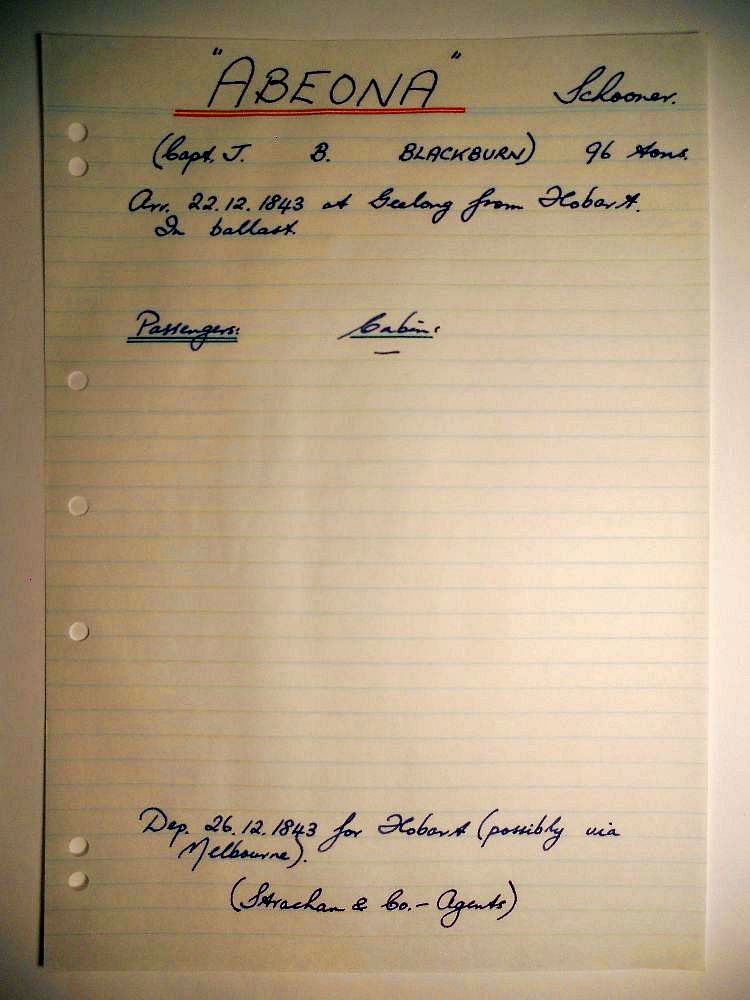 "ABEONA" Schooner.
(Capt. J. B. BLACKBURN) 96 tons.
Arr. 22.12.1843 at Geelong from Hobart.
In ballast.
Passengers: Cabin:
—
Dep. 26.12.1843 for Hobart (possibly via
Melbourne).
(Strachan & Co. - Agents)